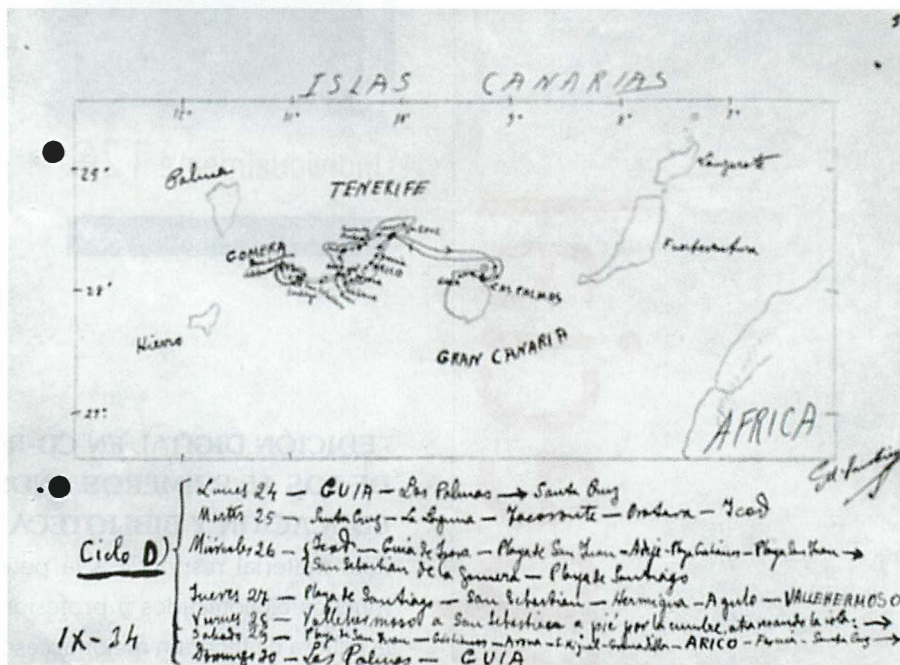 ISLAS CANARIAS
29°
Palma
TENERIFE
Lanzarote
GOMERA
Fuerteventura
28°
LAS PALMAS
Hierro
GRAN CANARIA
27°
AFRICA
Lunes 24 — GUIA — Las Palmas → Santa Cruz
Martes 25 — Santa Cruz — La Laguna — Tacoronte — Orotava — Icod
Ciclo D) Miércoles 26 — Icod — Guia de Isora — Playa de San Juan — Adeje — Playa San Juan →
San Sebastian de la Gomera — Playa de Santiago
Jueves 27 — Playa de Santiago — San Sebastian — Hermigua — Agulo — VALLEHERMOSO
Viernes 28 — Vallehermoso a San Sebastian a pié por la cumbre, atravesando la isla: →
IX-34 Sabado 29 — Playa de San Juan — Arona — S. Miguel — Granadilla — ARICO — Santa Cruz →
Domingo 30 — Las Palmas — GUIA